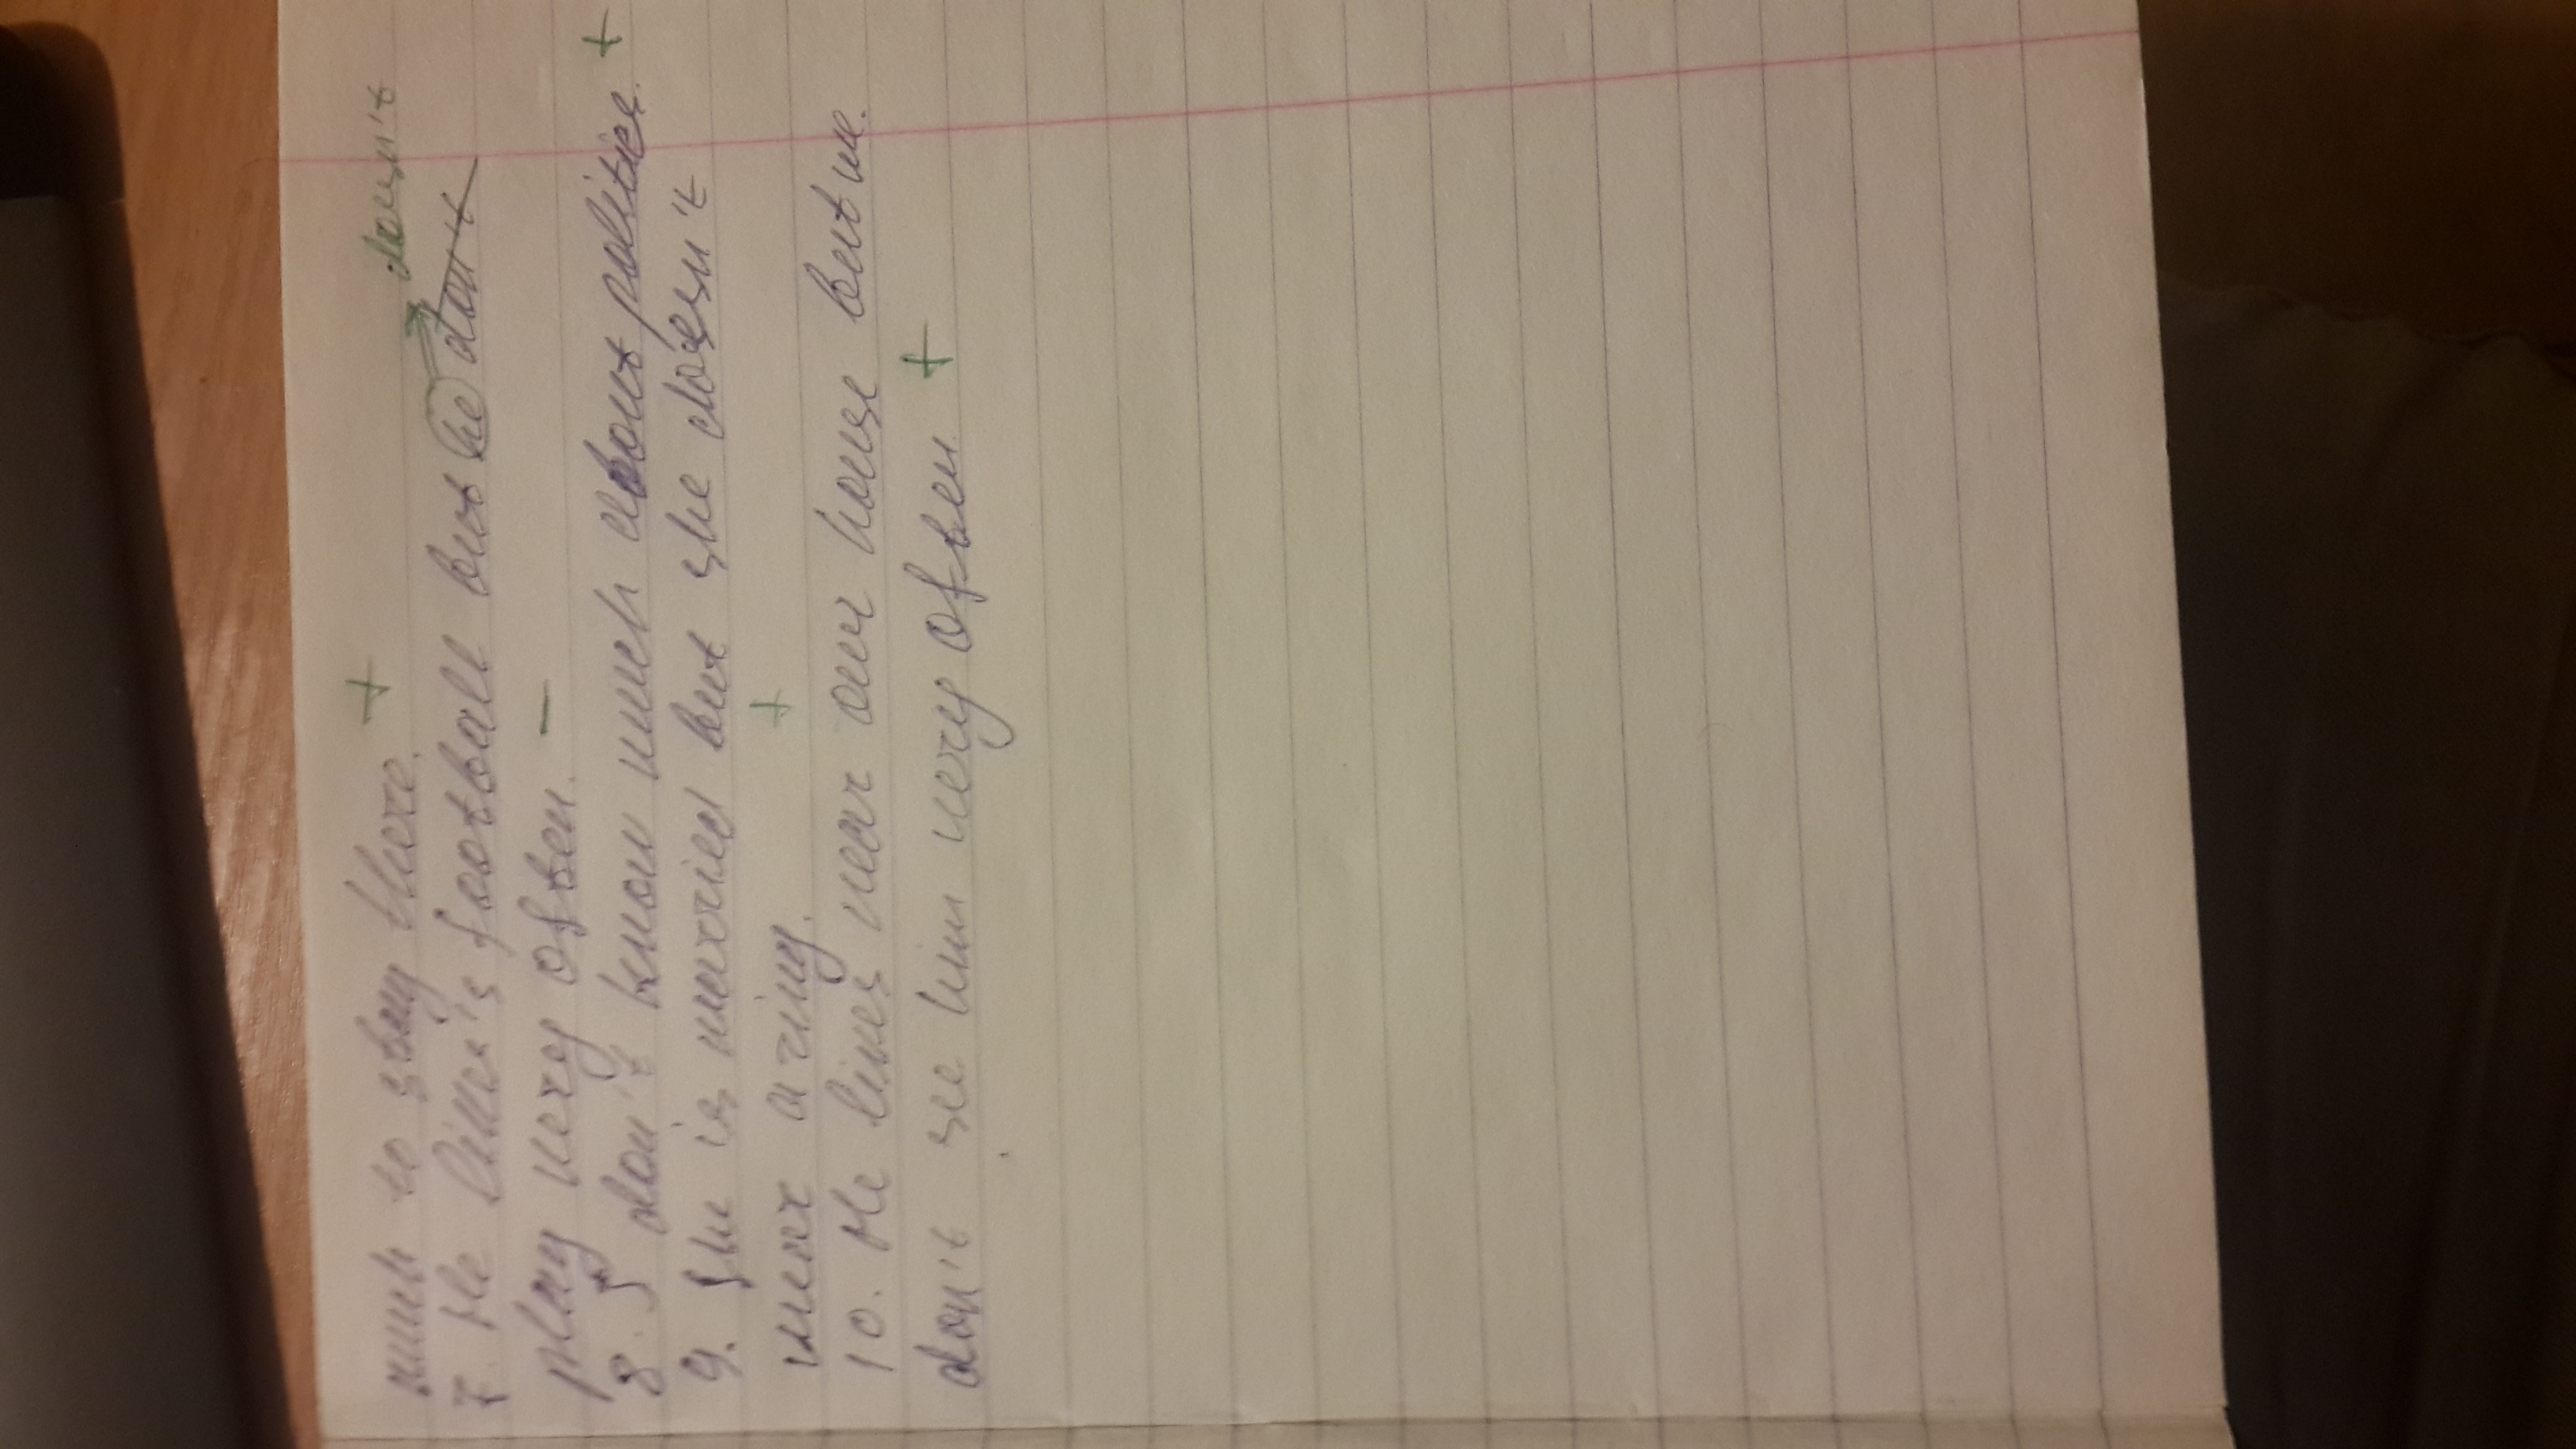 much to stay there. +
doesn't
7. He likes's football but he don't
play very often. –
8. I don't know much about politics. +
9. She is married but she doesn't
wear a ring. +
10. He lives near our house but we
don't see him very often. +